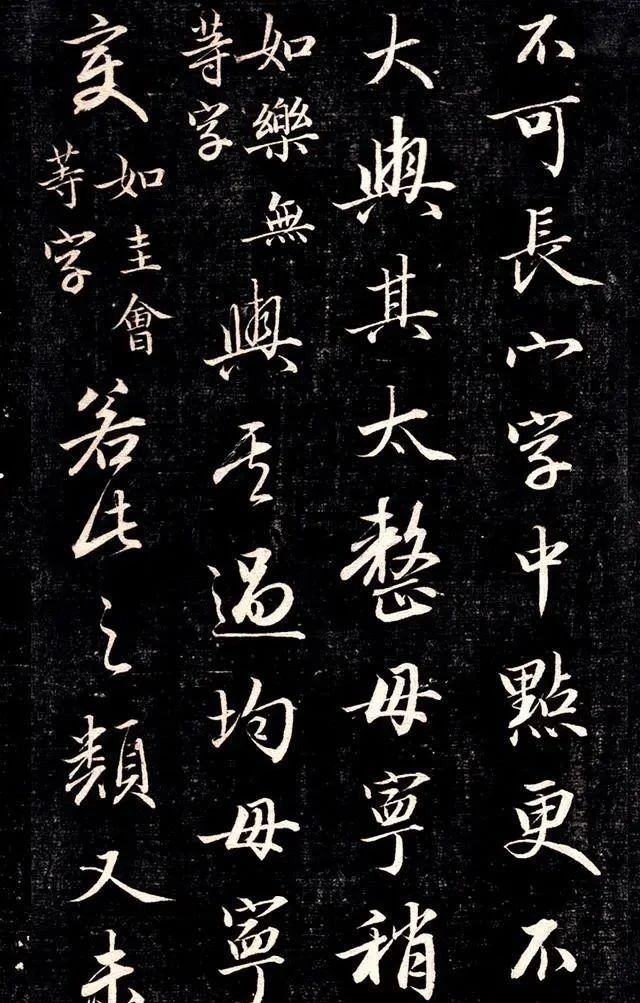 不可長宀字中點更不
大與其太整毋寧稍
如樂無
等字
與其過均毋寧
变
如圭會
等字
若此之類又未